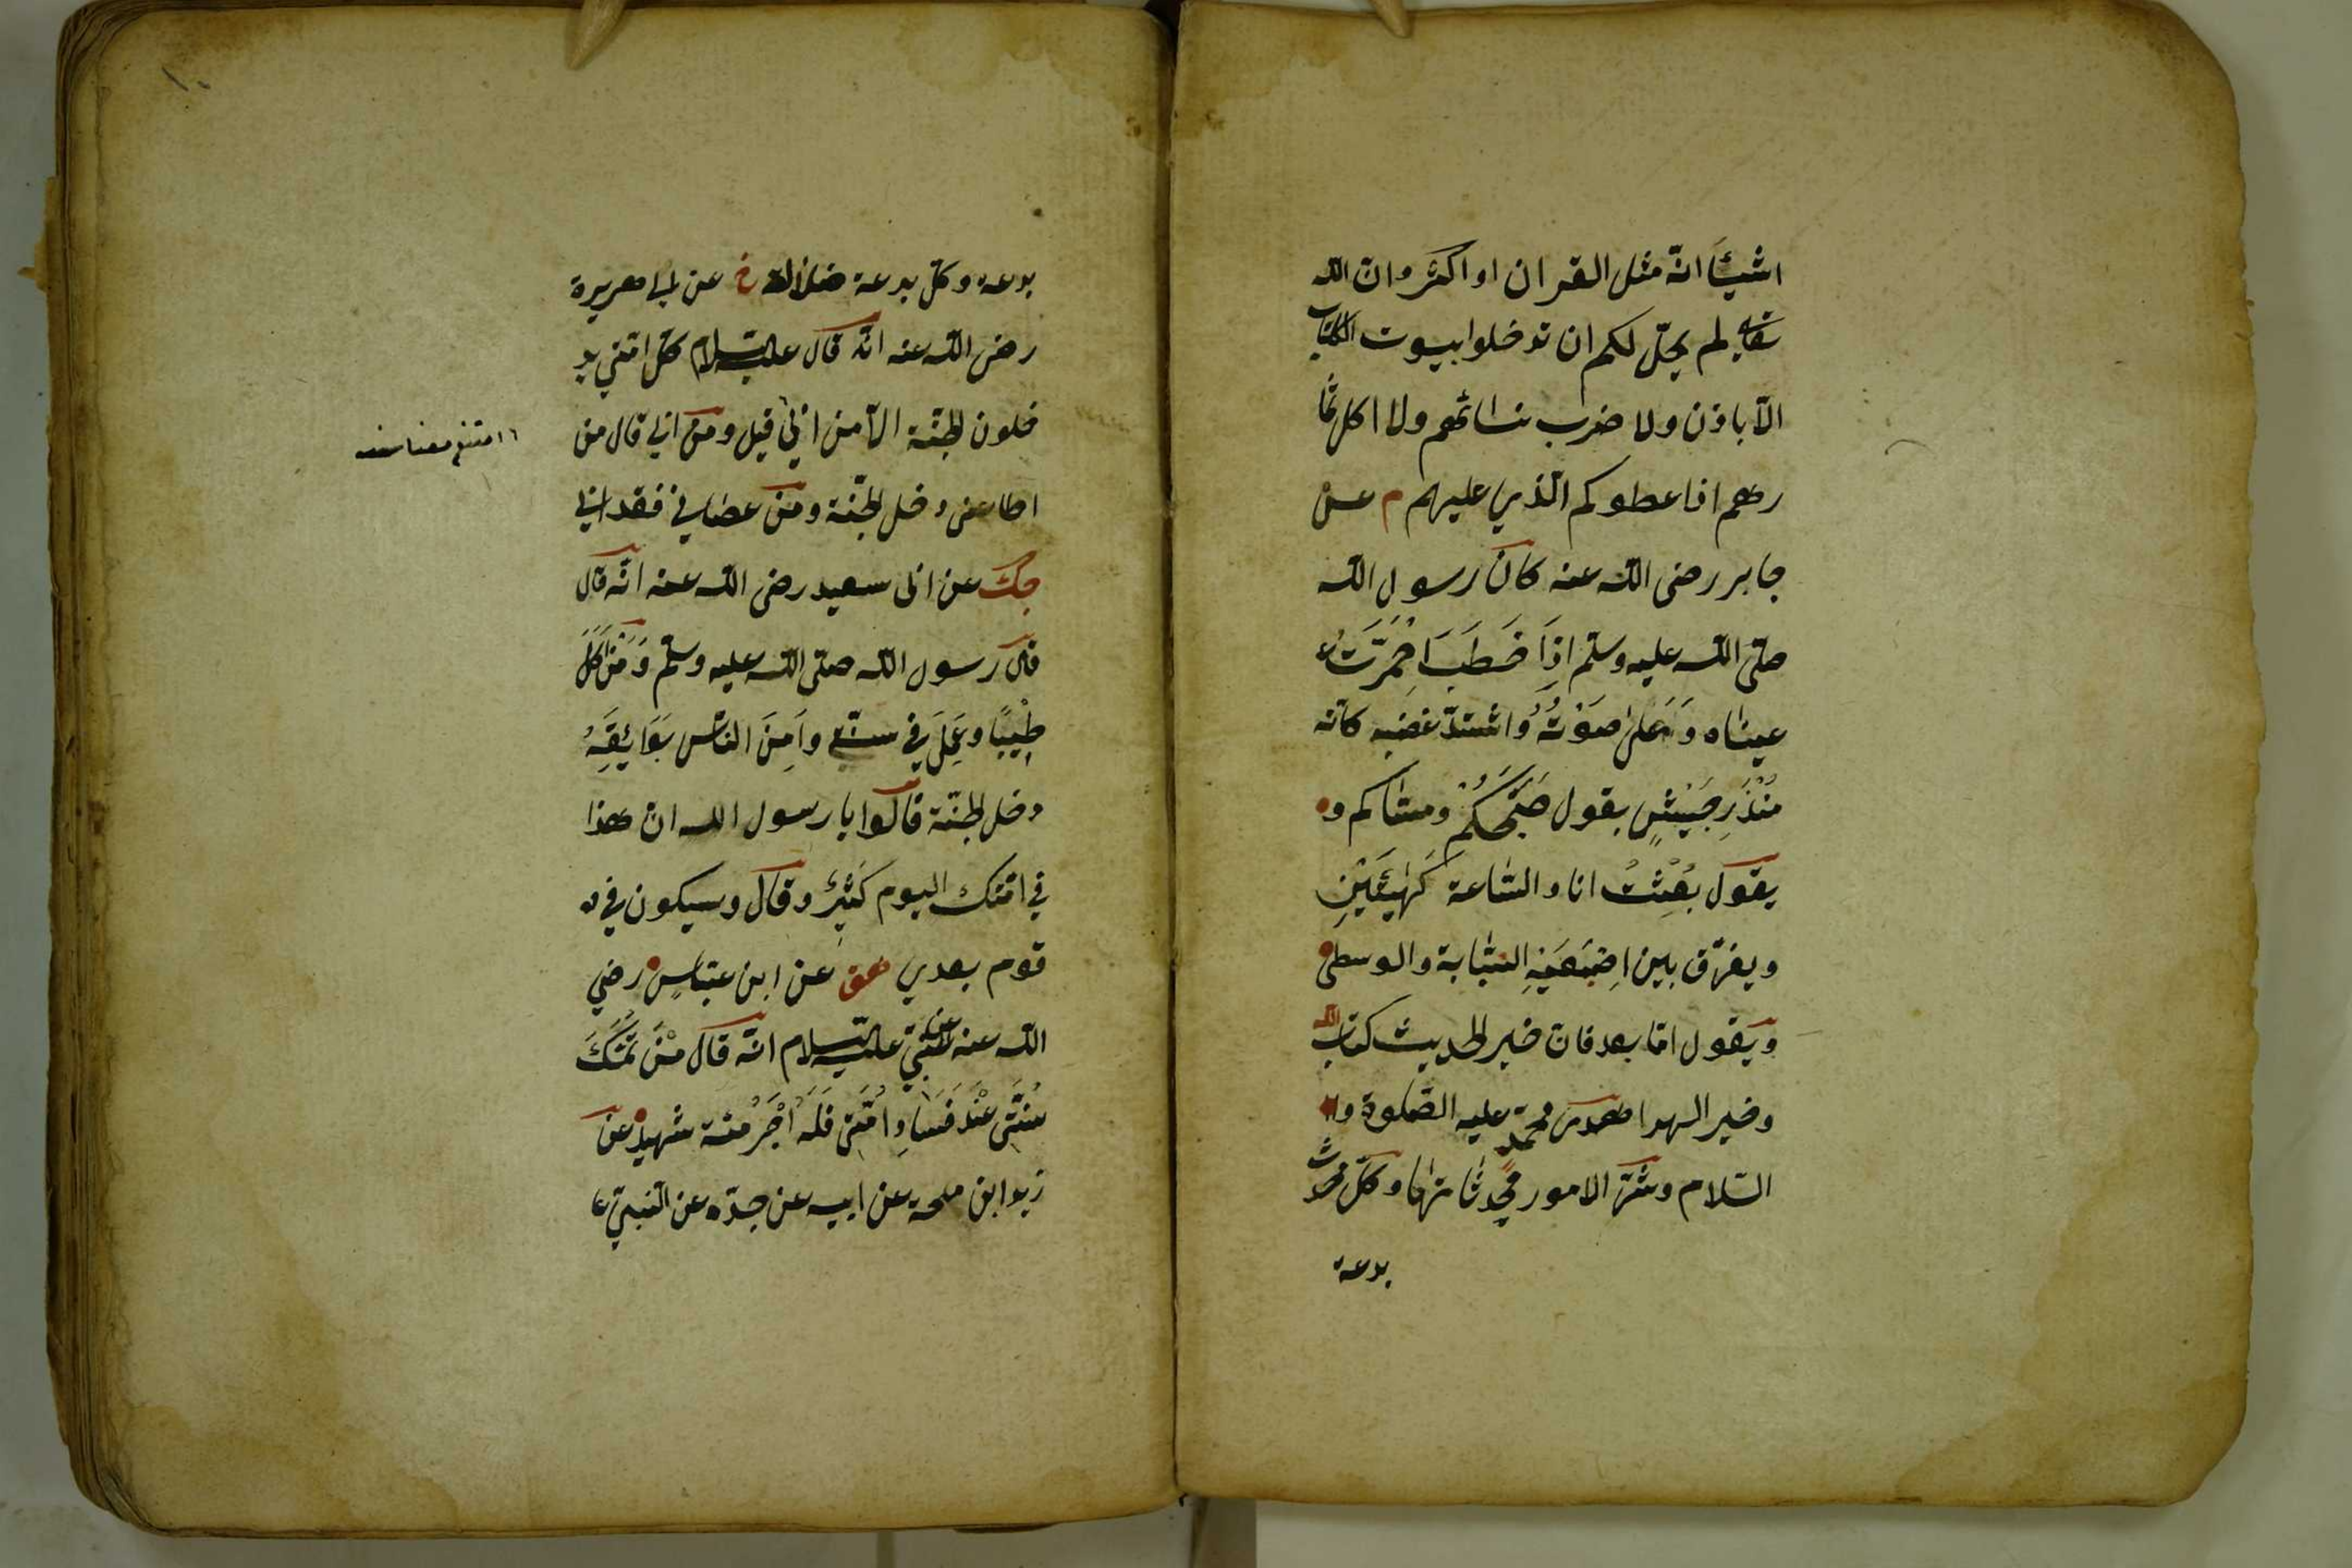 اشيئًا انّه مثل القران او اكثر وانّ اللّه
لم يحلّ لكم ان تدخلوا بيوت الكتاب
الّا باذن ولا ضرب نسائهم ولا اكل ثما
رهم اذا عطوكم الّذي عليهم م عن
جابر رضى اللّه عنه كان رسول اللّه
صلّى اللّه عليه وسلّم اِذَا خَطَبَ احْمَرَّتْ
عيناه وَعَلى صَوْتُهُ وَاشتدّ غضبه كانّه
مُنْذِرِ جَيْشٍ يقول صَبَّحَكُمْ ومسّاكم و
يقول بُعِثْتُ انا والسّاعة كَهَيْئَتَيْنِ
ويفرّق بين اِصْبَعَيْهِ السّبّابة والوسطى
ويقول امّا بعد فانّ خير الحديث كتاب اللّه
وخير الهدا هدى محمّد عليه الصّلوة و
السّلام وشرّ الامور محدثاتها وكلّ محدث
بدعة
بدعة وكلّ بدعة ضلالة خ عن ابى هريرة
رضى اللّه عنه انّه قال عليه السّلام كلّ امّتي يد
خلون الجنّة الّا من ابى قيل ومن ابى قال من
اطاعنى دخل الجنّة ومن عصانى فقد ابى
جك عن ابى سعيد رضى اللّه عنه انّه قال
قال رسول اللّه صلّى اللّه عليه وسلّم وَمَنْ اَكَلَ
طَيِّبًا وعَمِلَ في سنّة واَمِنَ النّاس بَوَائِقَهُ
دخل الجنّة قالوا يا رسول اللّه ان هذا
في امّتك اليوم كَثِيرٌ وقال وسيكون في
قوم بعدي هق عن ابن عبّاسٍ رضي
اللّه عنه عن النّبيّ عليه السّلام انّه قال مَنْ تَمَسَّكَ
بسُنَّتى عِنْدَ فَسَادِ اُمَّتى فَلَهُ اَجْرُ مئة شهيد عن
زيد ابن ملحة عن ابيه عن جدّه عن النّبيّ ع